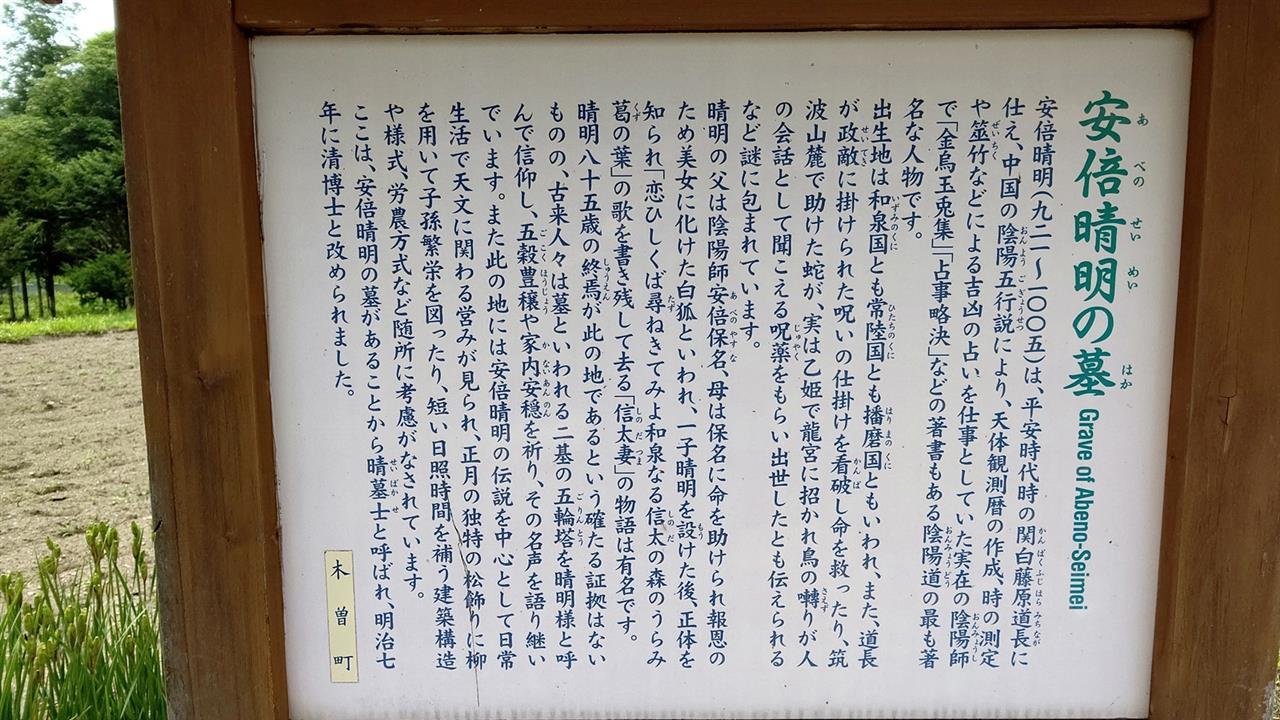 安倍晴明の墓 Grave of Abeno-Seimei
安倍晴明(九二一〜一〇〇五)は、平安時代時の関白藤原道長に
仕え、中国の陰陽五行説により、天体観測暦の作成、時の測定
や筮竹などによる吉凶の占いを仕事としていた実在の陰陽師
で「金烏玉兎集」「占事略決」などの著書もある陰陽道の最も著
名な人物です。
出生地は和泉国とも常陸国とも播磨国ともいわれ、また、道長
が政敵に掛けられた呪いの仕掛けを看破し命を救ったり、筑
波山麓で助けた蛇が、実は乙姫で龍宮に招かれ鳥の囀りが人
の会話として聞こえる呪薬をもらい出世したとも伝えられる
など謎に包まれています。
晴明の父は陰陽師安倍保名、母は保名に命を助けられ報恩の
ため美女に化けた白狐といわれ、一子晴明を設けた後、正体を
知られ「恋ひしくば尋ねきてみよ和泉なる信太の森のうらみ
葛の葉」の歌を書き残して去る「信太妻」の物語は有名です。
晴明八十五歳の終焉が此の地であるという確たる証拠はない
ものの、古来人々は墓といわれる二基の五輪塔を晴明様と呼
んで信仰し、五穀豊穣や家内安穏を祈り、その名声を語り継い
でいます。また此の地には安倍晴明の伝説を中心として日常
生活で天文に関わる営みが見られ、正月の独特の松飾りに柳
を用いて子孫繁栄を図ったり、短い日照時間を補う建築構造
や様式、労農方式など随所に考慮がなされています。
ここは、安倍晴明の墓があることから晴墓士と呼ばれ、明治七
年に清博士と改められました。
木曽町